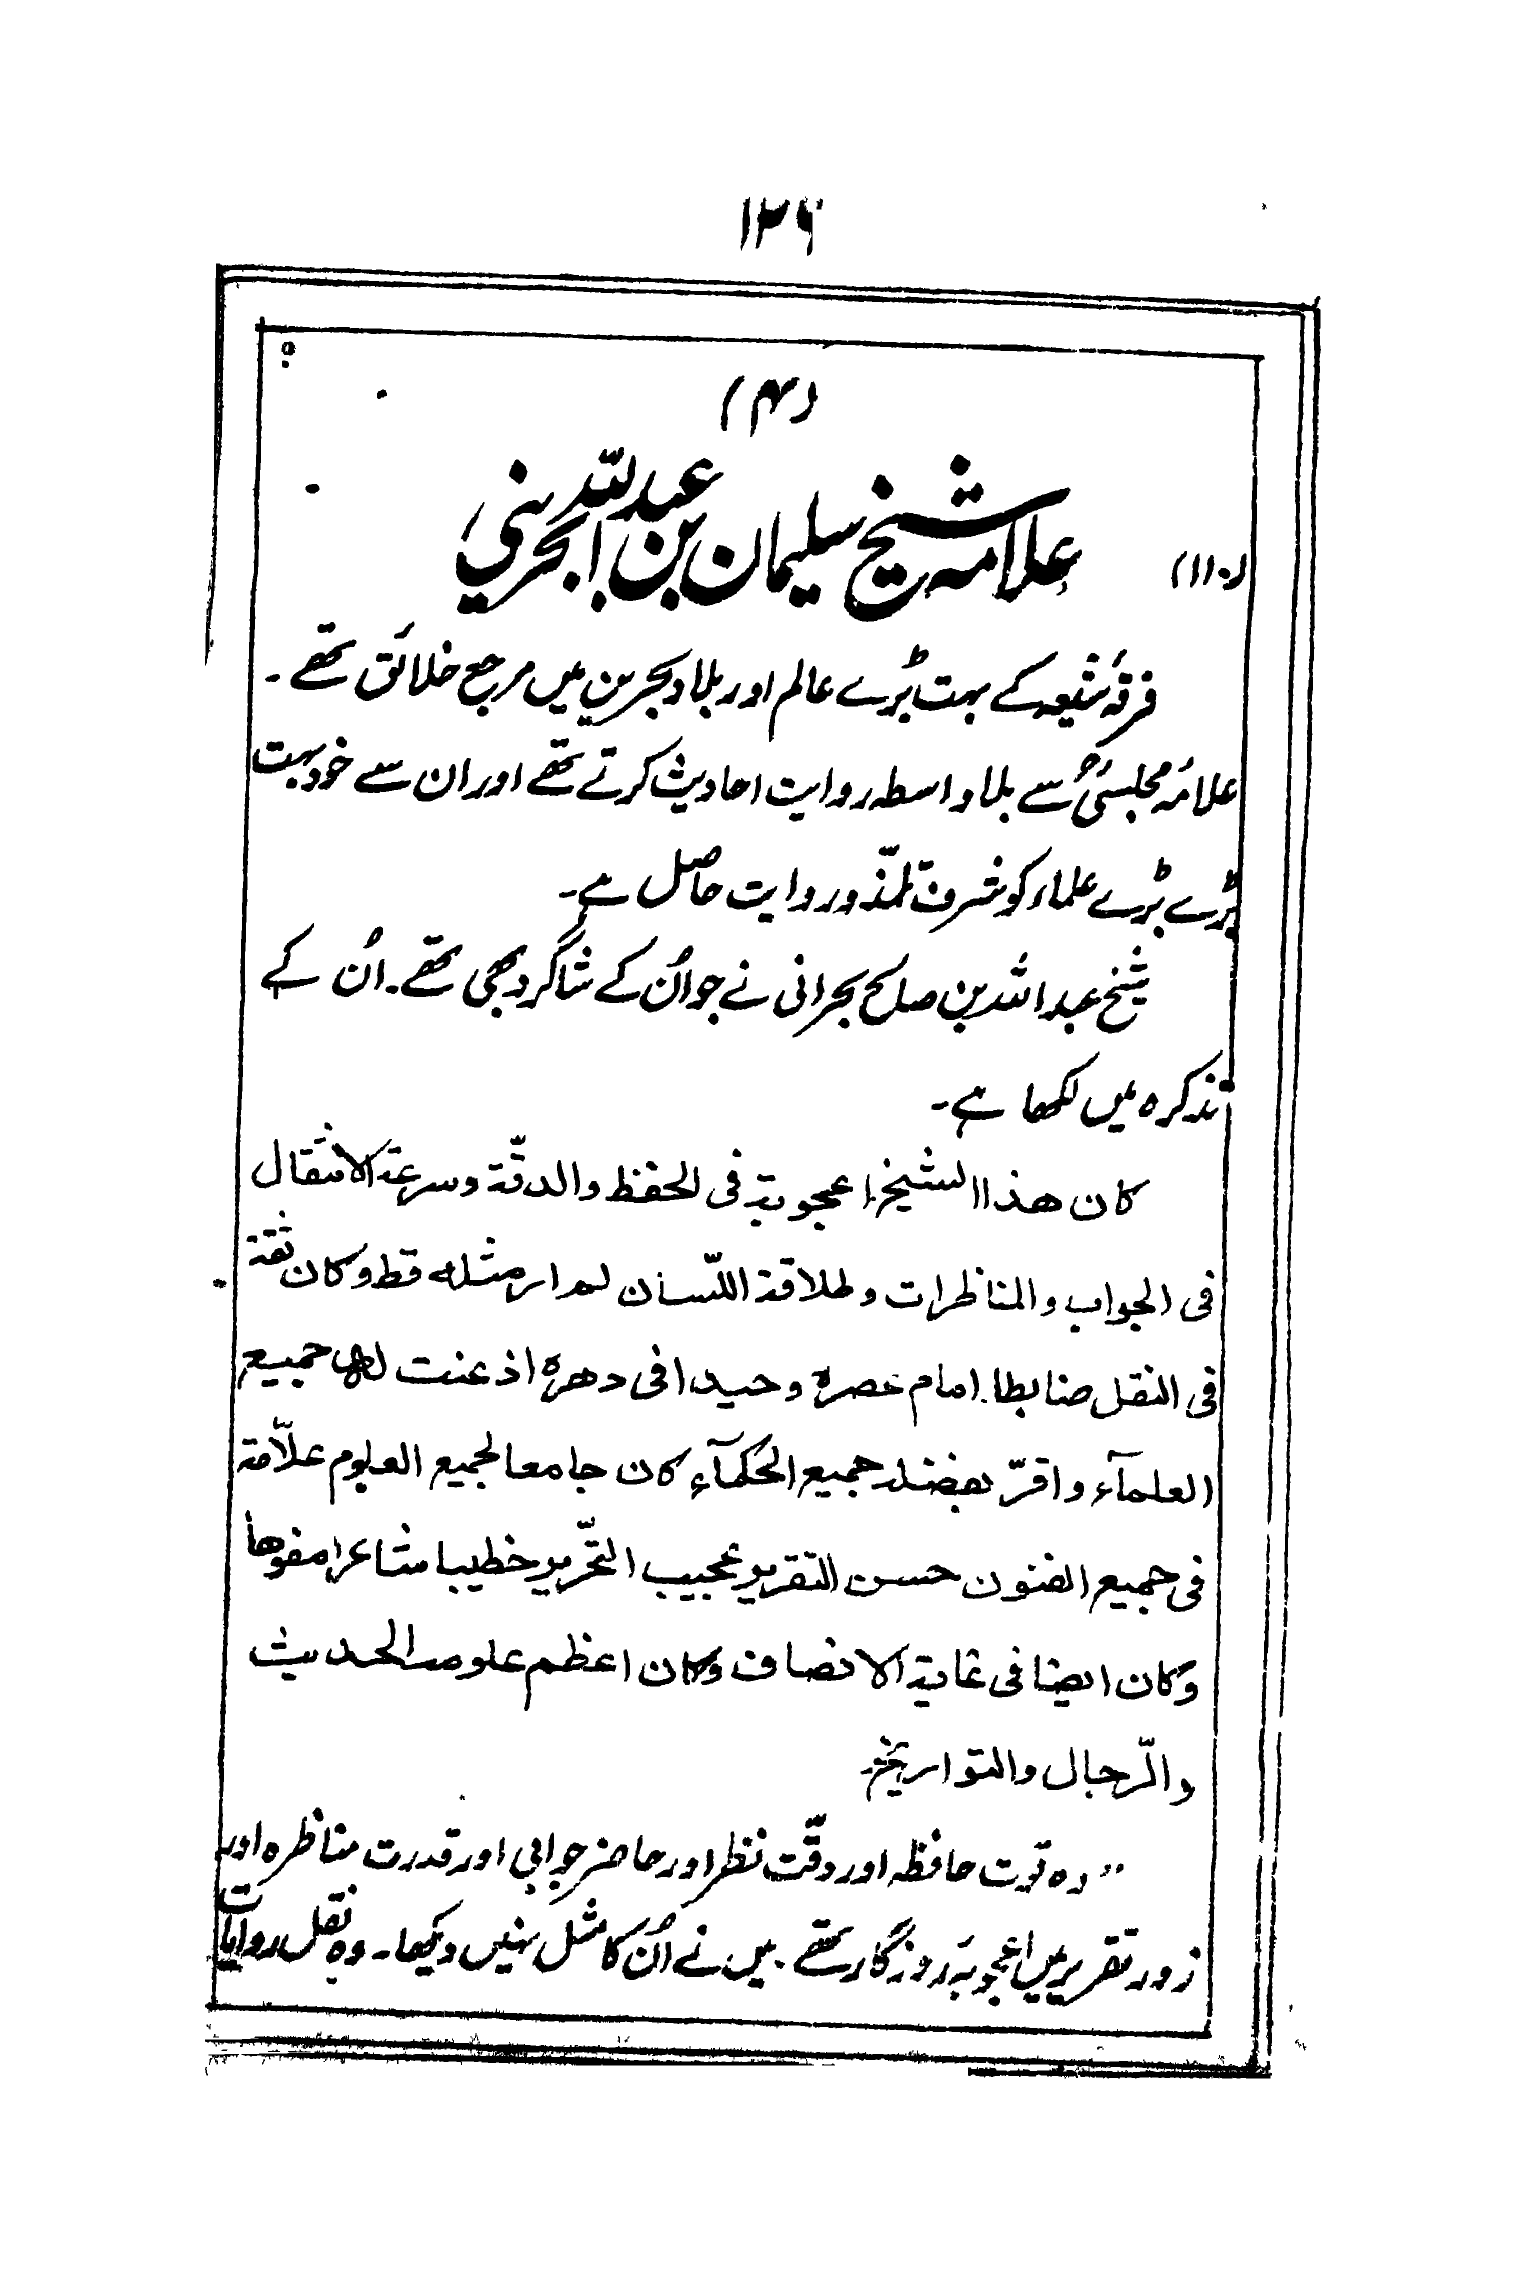 ۱۲۶
(۴)
(۱۱۰) علامہ شیخ سلیمان بن عبداللہ البحرینی
فرقۂ شیعہ کے بہت بڑے عالم اور بلاد بحرین میں مرجع خلائق تھے ۔
علامہ مجلسیؒ سے بلا واسطہ روایت احادیث کرتے تھے اور ان سے خود بہت
بڑے بڑے علماء کو شرف تلمّذ و روایت حاصل ہے۔
شیخ عبداللہ بن صالح بحرانی نے جو اُن کے شاگرد بھی تھے۔ اُن کے
تذکرہ میں لکھا ہے۔
کان هذا الشیخ اعجوبة فی الحفظ والدقّة وسرعة الانتقال
فی الجواب والمناظرات وطلاقة اللّسان لم ار مثله قط وکان ثقة
فی النقل ضابطا امام عصره وحیدا فی دهره اذعنت له جمیع
العلمآء واقرّ بفضله جمیع الحکمآء کان جامعا لجمیع العلوم علّامة
فی جمیع الفنون حسن التقریر عجیب التحّریر خطیبا شاعرا مفوها
وکان ایضا فی غایة الانصاف وکان اعظم علومه الحدیث
والرّجال والتواریخ۔
”وہ قوت حافظہ اور دقّت نظر اور حاضر جوابی اور قدرت مناظرہ اور
زور تقریر میں اعجوبۂ روزگار تھے ۔ میں نے اُن کا مثل نہیں دیکھا۔ وہ نقل روایات